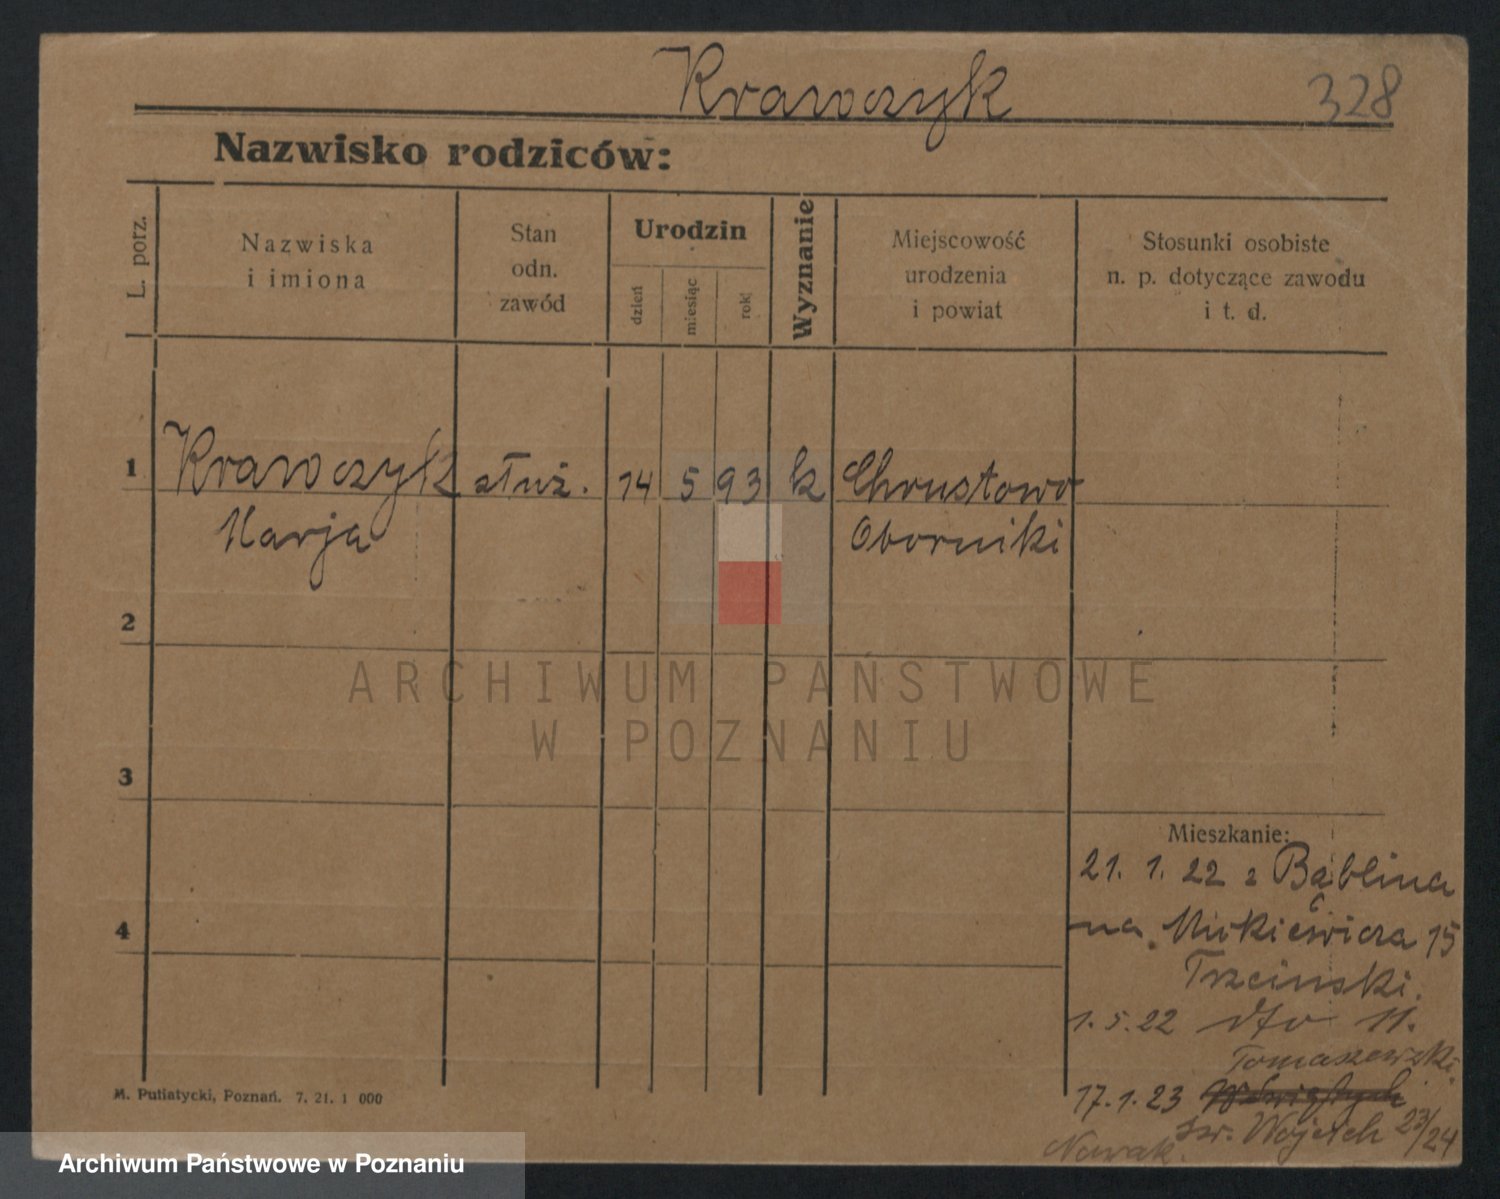 Krawczyk
328
Nazwisko rodziców:
L. porz.
Nazwiska
i imiona
Stan
odn.
zawód
Urodzin
dzień
miesiąc
rok
Wyznanie
Miejscowość
urodzenia
i powiat
Stosunki osobiste
n. p. dotyczące zawodu
i t. d.
1 Krawczyk służ. 14 5 93 k Chrustowo
Marja Oborniki
2
3
4
Mieszkanie:
21. 1. 22 z Bąblina
na Mickiewicza 15
Trzcinski.
1.5.22 dto 11.
Tomaszewski.
17.1.23
św. Wojciech 23/24
Nowak.
M. Putiatycki, Poznań. 7. 21. 1 000
ARCHIWUM PAŃSTWOWE
W POZNANIU
Archiwum Państwowe w Poznaniu